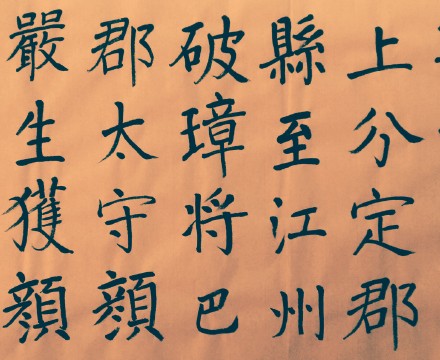 上分定郡
縣至江州
破璋将巴
郡太守顔
嚴生獲顔